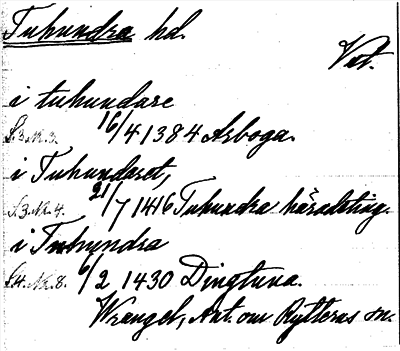 Tuhundra hd.
Vst.
i tuhundare
S.3. N. 3. 16/4 1384 Arboga.
i Tuhundaret,
S.3. N. 4. 21/7 1416 Tuhundra häradsting.
i Tuhundra
S.4. N. 8. 6/2 1430 Dingtuna.
Wrangel, Ant. om Rytterns sn.